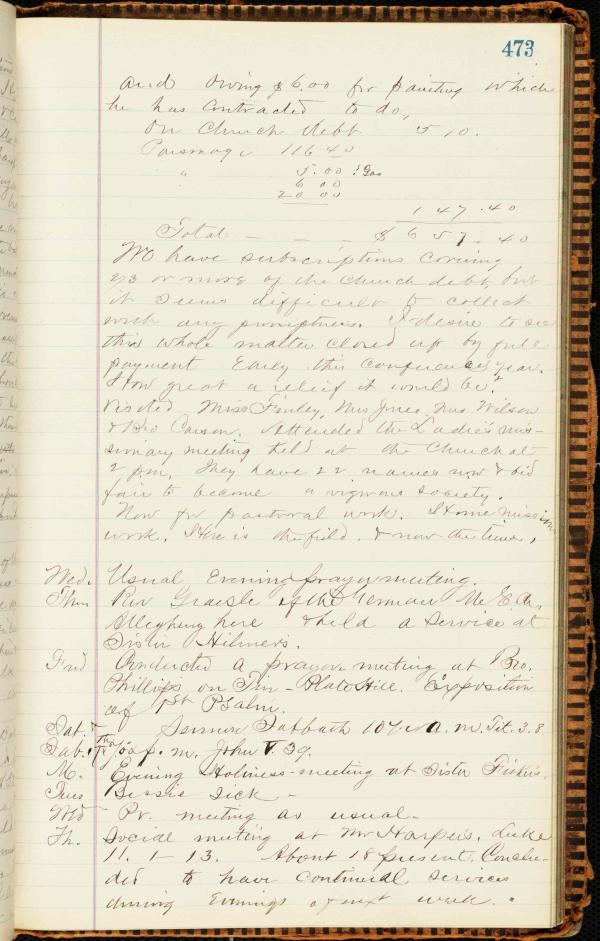 473
and owing $6.00 for painting which
he has contracted to do,
On Church debt 510.
Parsonage 116 40
" 5.00 : Gas
6 00
20 00
147.40
Total — — — $657.40
We have subscriptions covering
2/3 or more of the church debt, but
it seems difficult to collect
with any promptness. I desire to see
this whole matter closed up by full
payment Early this conference year.
How great a relief it would be.
Visited Miss Finley, Mrs Jones, Mrs Wilson
& Bro Carson. Attended the Ladies mis-
sionary meeting held at the Church at
2 p.m. They have 22 names now & bid
fair to become a vigorous society.
Now for pastoral work. Home mission
work. Here is the field. & now the time,
Wed. Usual Evening prayer meeting.
Thur Rev Graesle of the German M.E. Ch,
Allegheny here & held a service at
Sister Hilmers.
Frid Conducted a prayer-meeting at Bro.
Phillips on Tin-Plate Hill. Exposition
of 1st Psalm.
Sat. &
Sab. Sermon Sabbath 10½ a.m. Tit. 3.8.
7 p.m. John V. 39.
M. Evening Holiness-meeting at Sister Fisher's.
Tues Bessie Sick —
Wed Pr. meeting as usual.
Th. Social meeting at Mr Harpers. Luke
11. 1-13. About 18 present. Conclu-
ded to have continual services
during Evenings of next week.